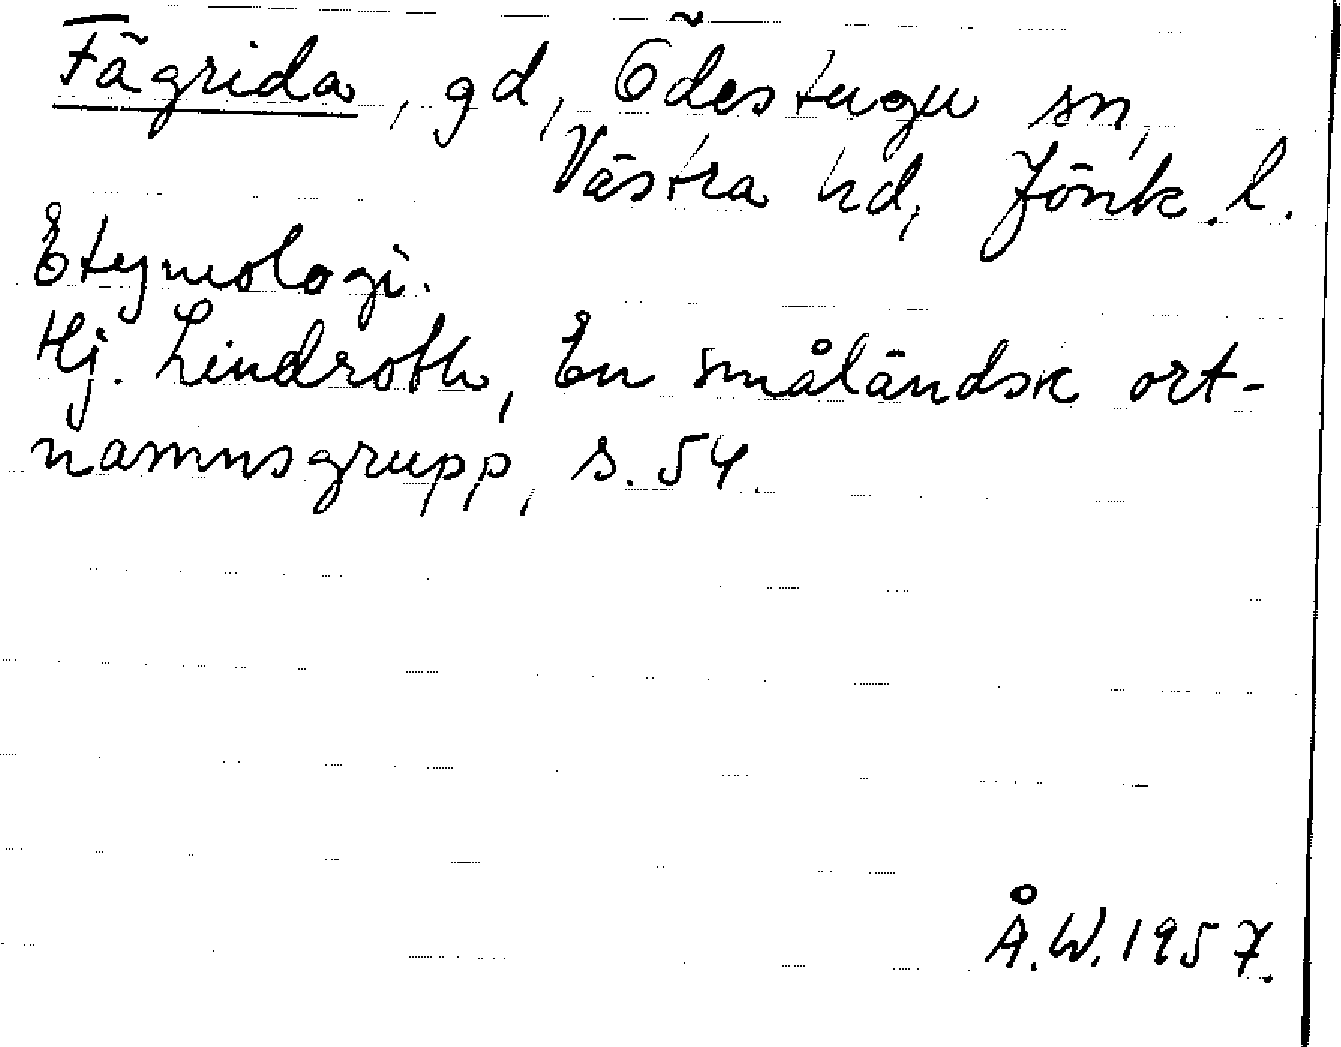 Fägrida, gd, Ödestugu sn,
Västra hd, Jönk. l.
Etymologi.
Hj. Lindroth, En småländsk ort-
namnsgrupp, s. 54.
Å.W. 1957.